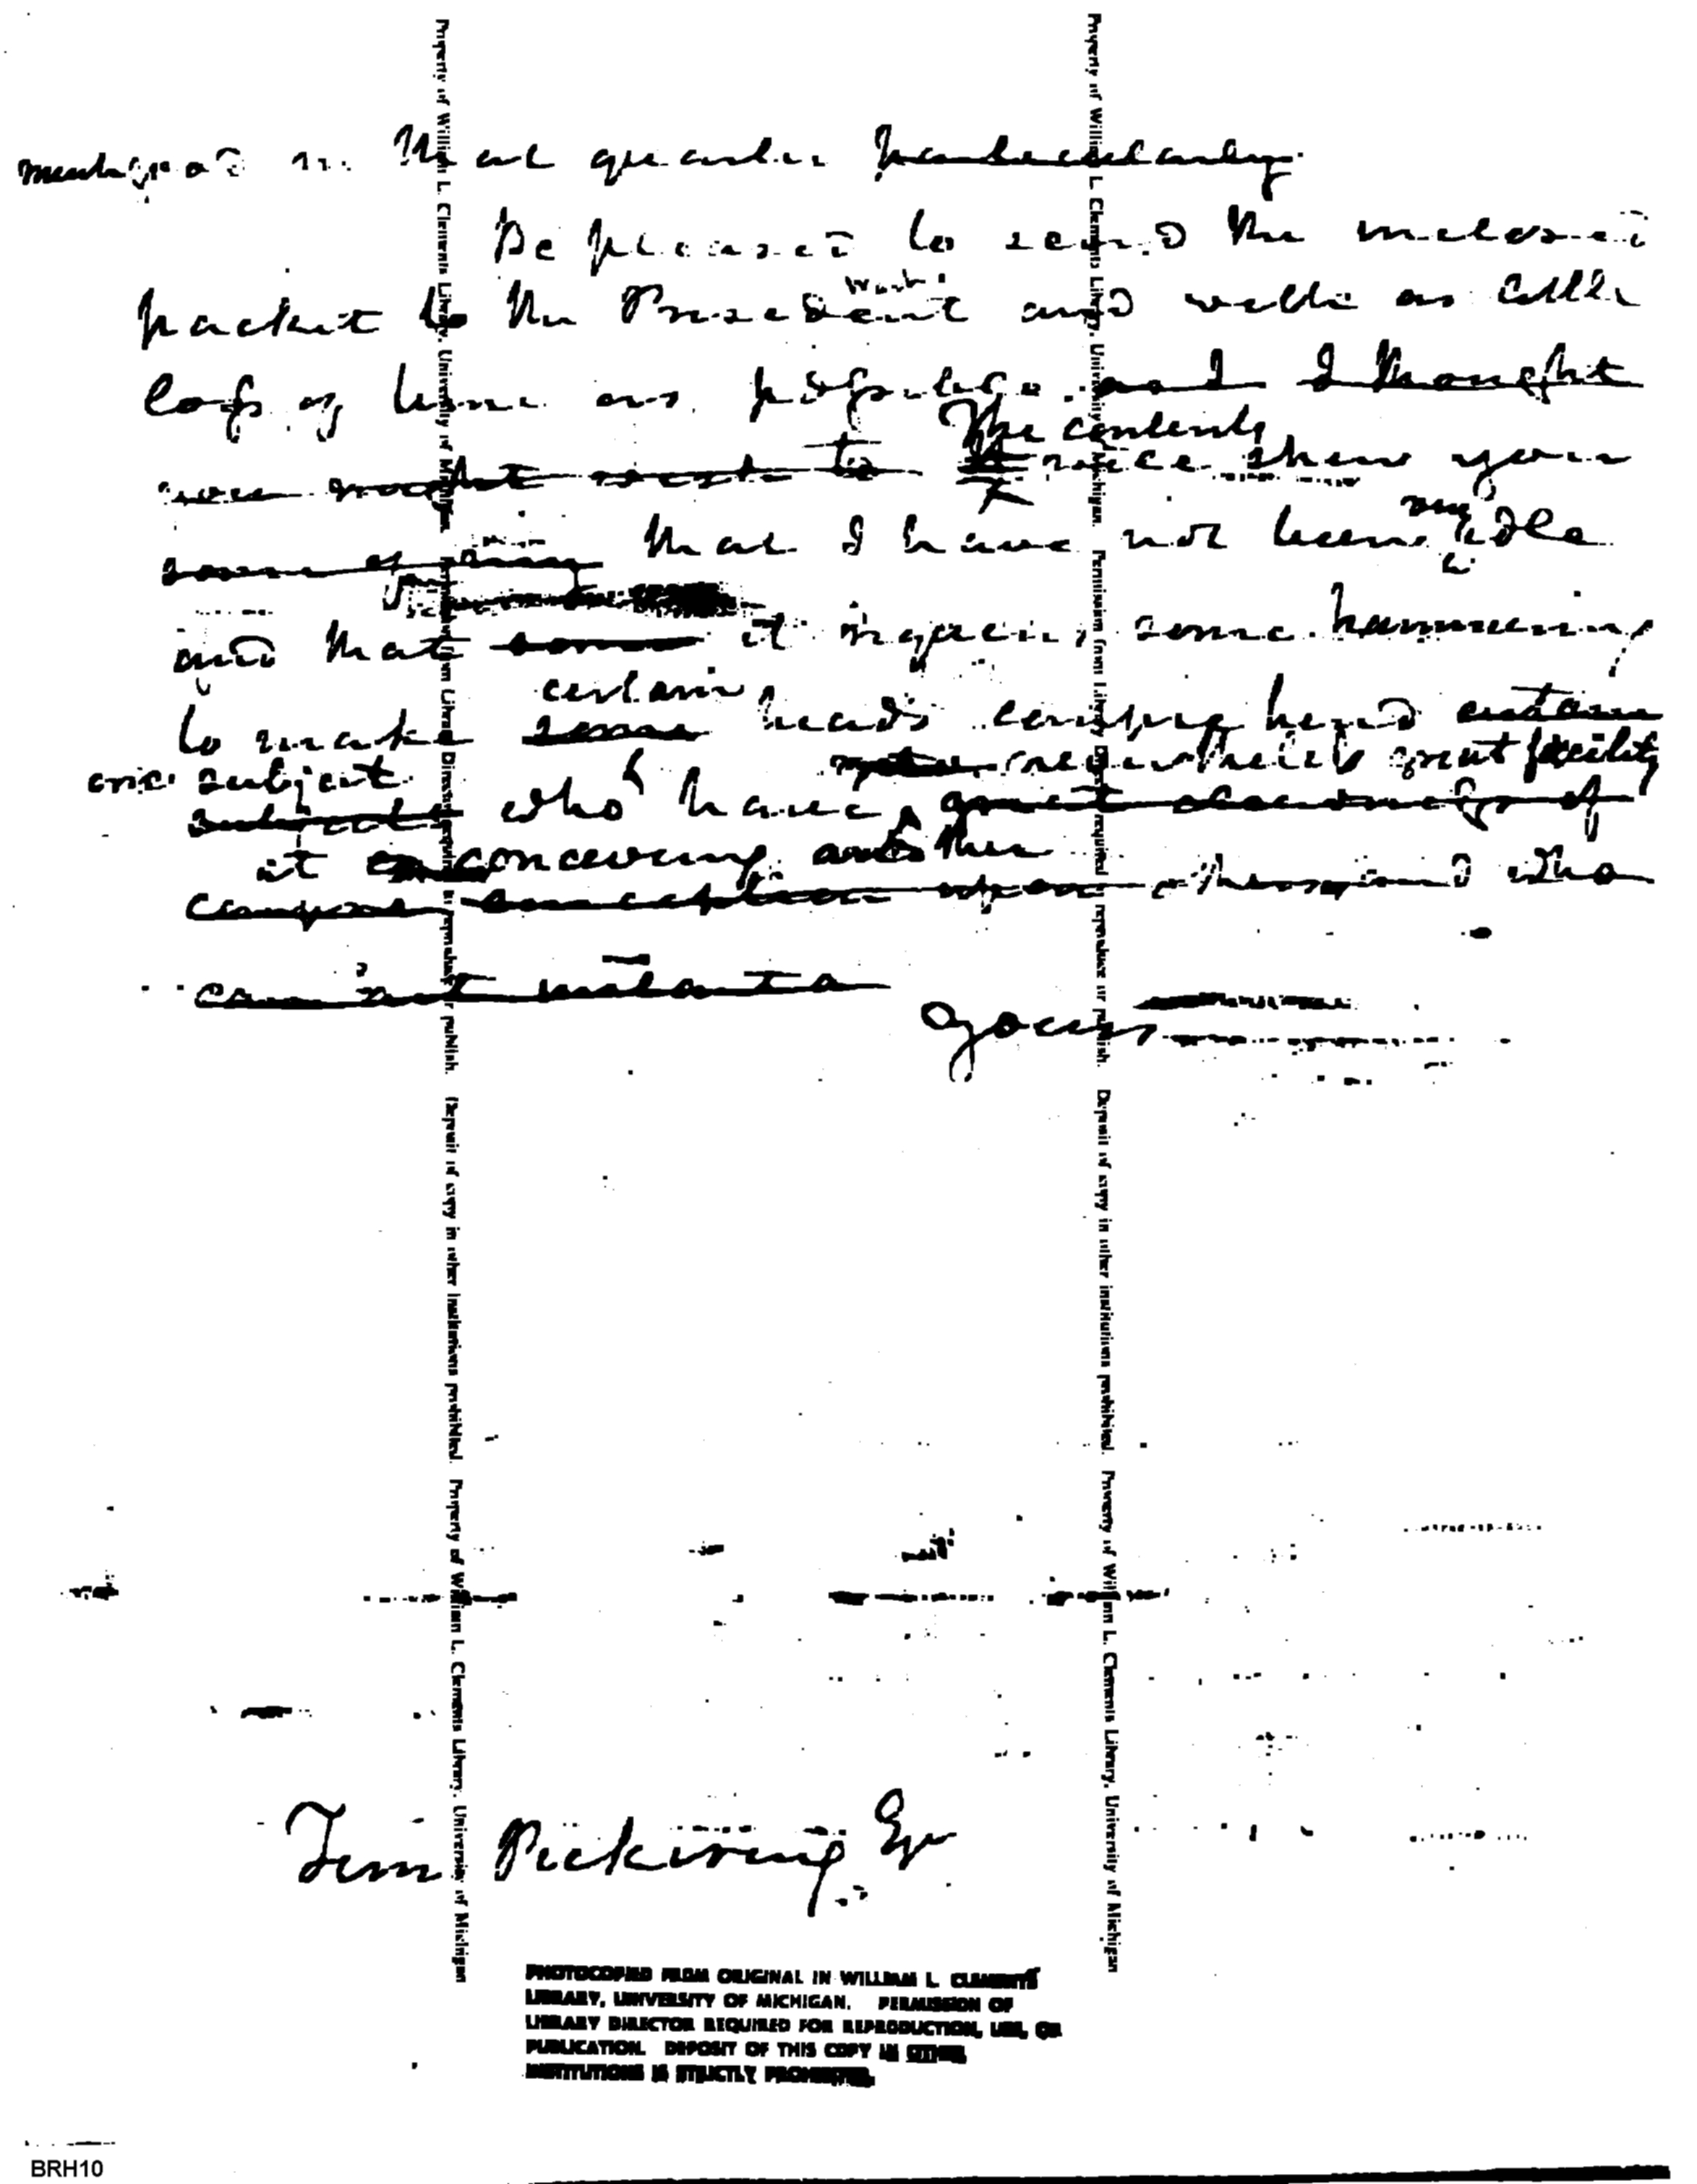 in that quarter particularly.
Be pleased to send the inclosed
packet to the President and with as little
loss of time as possible. and I thought
The contents
you might wish to shew you
that I have not been idle
and that some it requires some hammering
certain
to make some heads comprehend certain
one subject nevertheless great facility
subjects who have great obscurity of
it conceiving another
conception upon who
can not
Yours
Tim Pickering Esqr
PHOTOCOPIED FROM ORIGINAL IN WILLIAM L. CLEMENTS
LIBRARY, UNIVERSITY OF MICHIGAN. PERMISSION OF
LIBRARY DIRECTOR REQUIRED FOR REPRODUCTION, USE, OR
PUBLICATION. DEPOSIT OF THIS COPY IN OTHER
INSTITUTIONS IS STRICTLY PROHIBITED.
BRH10
Property of William L. Clements Library, University of Michigan. Permission from Library Director required to reproduce or publish. Deposit of copy in other institutions prohibited. Property of William L. Clements Library, University of Michigan
Property of William L. Clements Library, University of Michigan. Permission from Library Director required to reproduce or publish. Deposit of copy in other institutions prohibited. Property of William L. Clements Library, University of Michigan